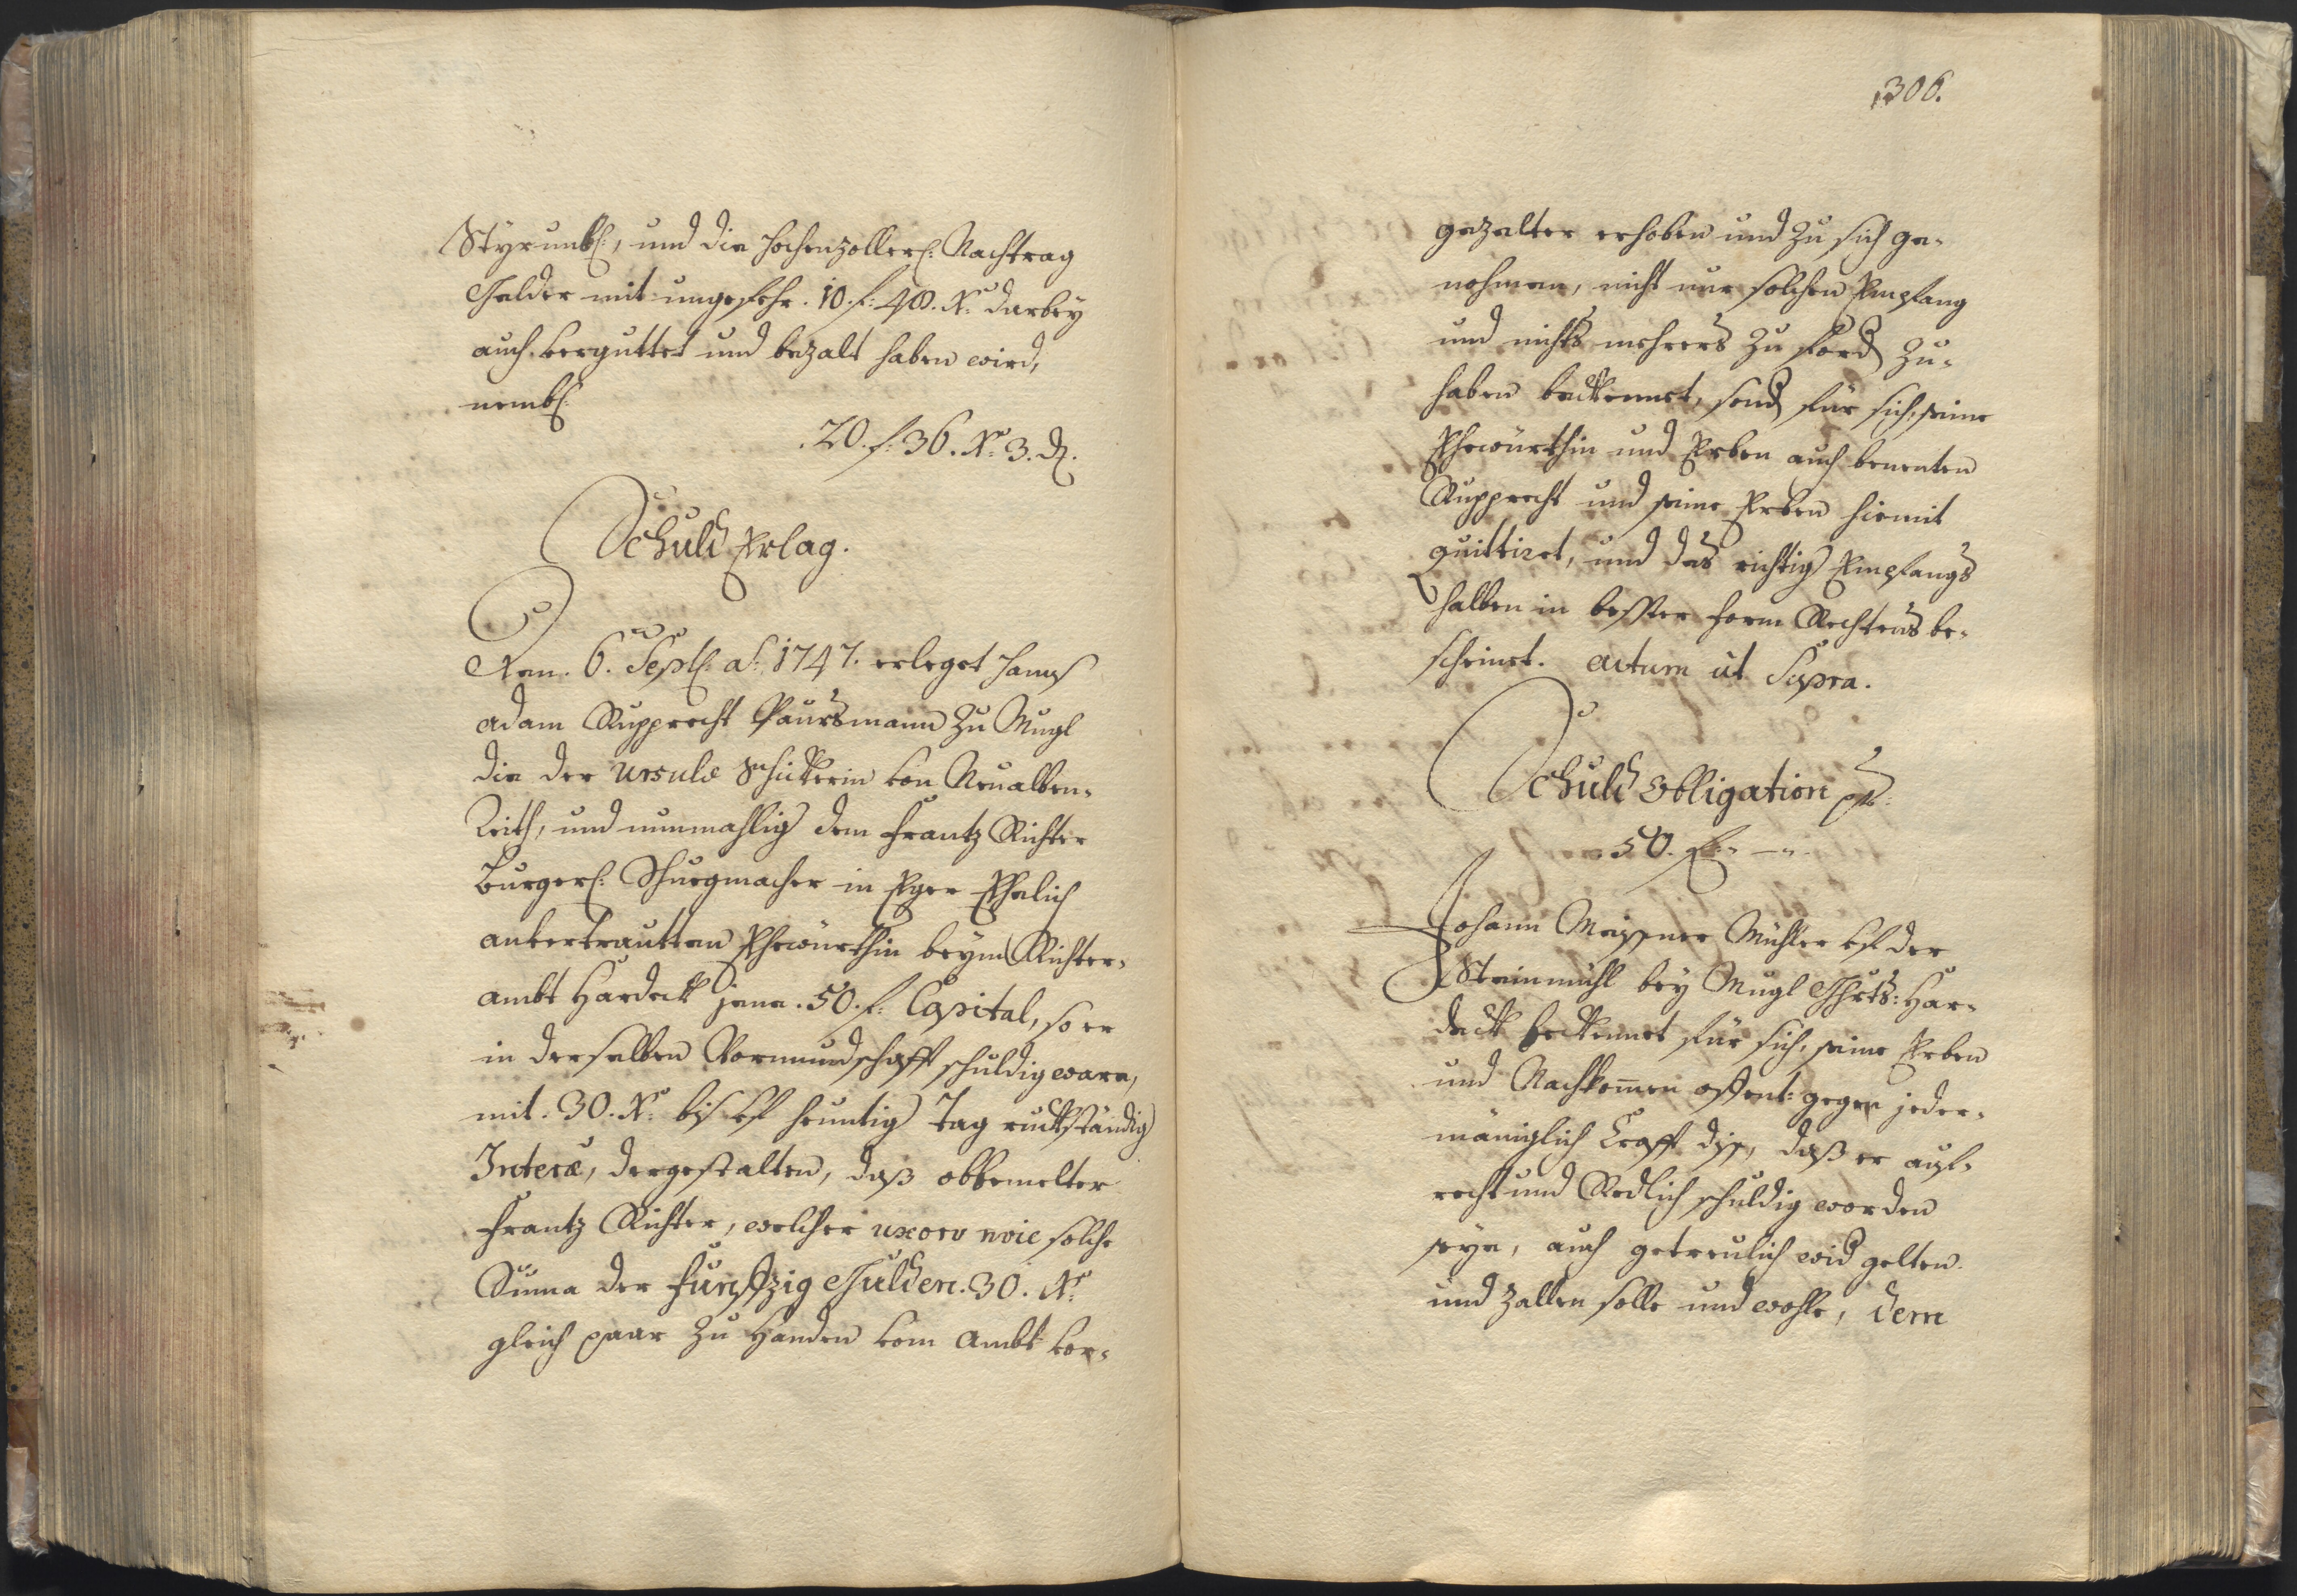 Styrumbl:, und die Hochenzollerl: Nachtrag
Gelder mit ungefehr . 10. f: 48. Xr: darbey
auch verguttet und bezalt haben wird,
nembl:
. 20. f: 36. Xr: 3. d.
Schuld Erlag.
Den . 6. Sept: aô: 1747. erleget Hanns
Adam Rupprecht Paursmann zu Mugl
die der Ursulæ Schickerin von Neualben-
Reith, und nunmahlig dem Frantz Richter
Burgerl: Schuegmacher in Eger Ehelich
anvertrautten Ehewürthin beym Richter-
ambt Hardeck jene . 50. f: Capital, so er
in derselben Vormundschafft schuldig ware,
mit . 30. Xr: biß uf heuntig Tag ruckständig
Interæ, dergestalten, daß obbemelter
Frantz Richter, welcher uxor: noie solche
Suma der funffzig Gulden . 30. Xr:
gleich paar zu Handen vom Ambt vor-
306.
gezalter erhoben und zu sich ge-
nohmen, nicht nur solchen Empfang
und nichts mehrers zu ford zu-
haben beckennet, sond für sich, seine
Ehewürthin und Erben auch benenten
Rupprecht und seine Erben hiemit
quittiret, und das richtig Empfangs
halben in bester form Rechtens be-
scheinet. Actum ut Supra.
Schuld Obligation pr:
50. f: — „.
Johann Meissner Mühler uf der
Steinmühl bey Mugl Ghrts: Har-
deck beckennet für sich, seine Erben
und Nachkomen offent: gegen jeder-
mäniglich Crafft diss, daß er auf-
recht und Redlich schuldig worden
seye, auch getreulich wid gelten
und zallen solle und wohle, dem